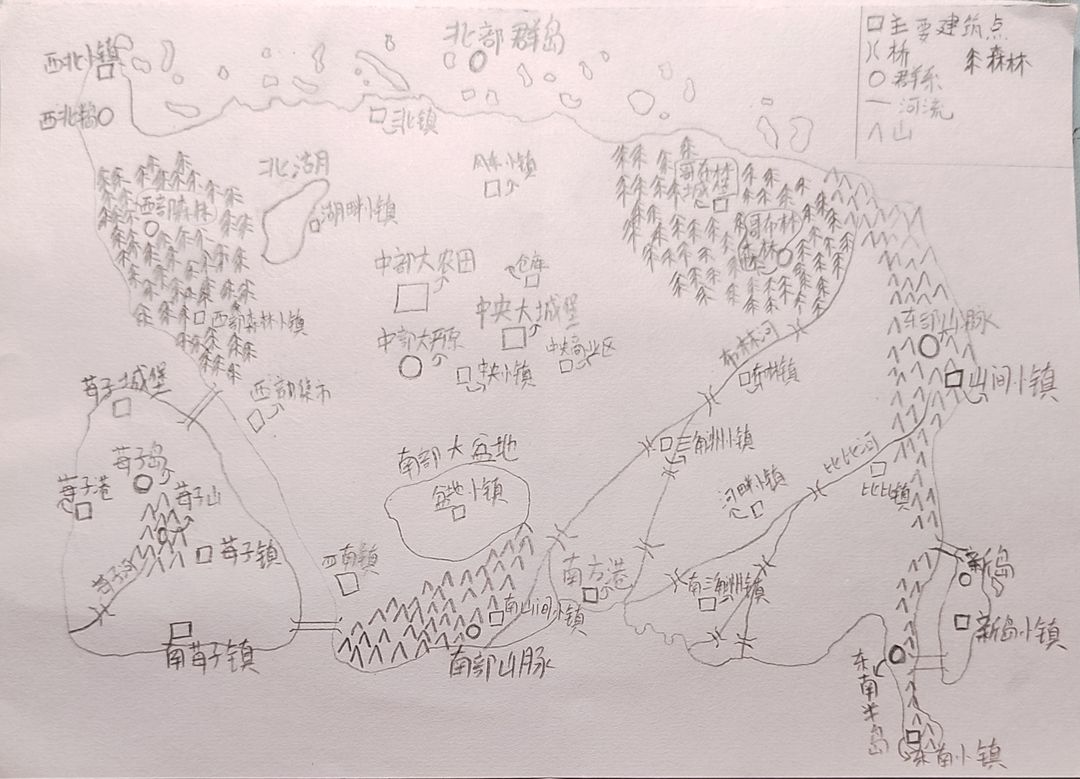 主要建筑点
桥
森林
群系
河流
山
北部群岛
西北小镇
西北岛
北镇
北湖
湖畔小镇
西部森林
西部森林小镇
哥布林
城堡
哥布林
森林
中部大农田
仓库
中央大城堡
中部大平原
中央小镇
中央商业区
东部山脉
山间小镇
布林河
布林镇
三角洲小镇
比比河
比比镇
河畔小镇
莓子城堡
西部集市
莓子岛
莓子港
莓子山
莓子镇
莓子河
南莓子镇
南部大盆地
盆地小镇
西南镇
南山间小镇
南部山脉
南方港
新岛
新岛小镇
东南半岛
东南小镇